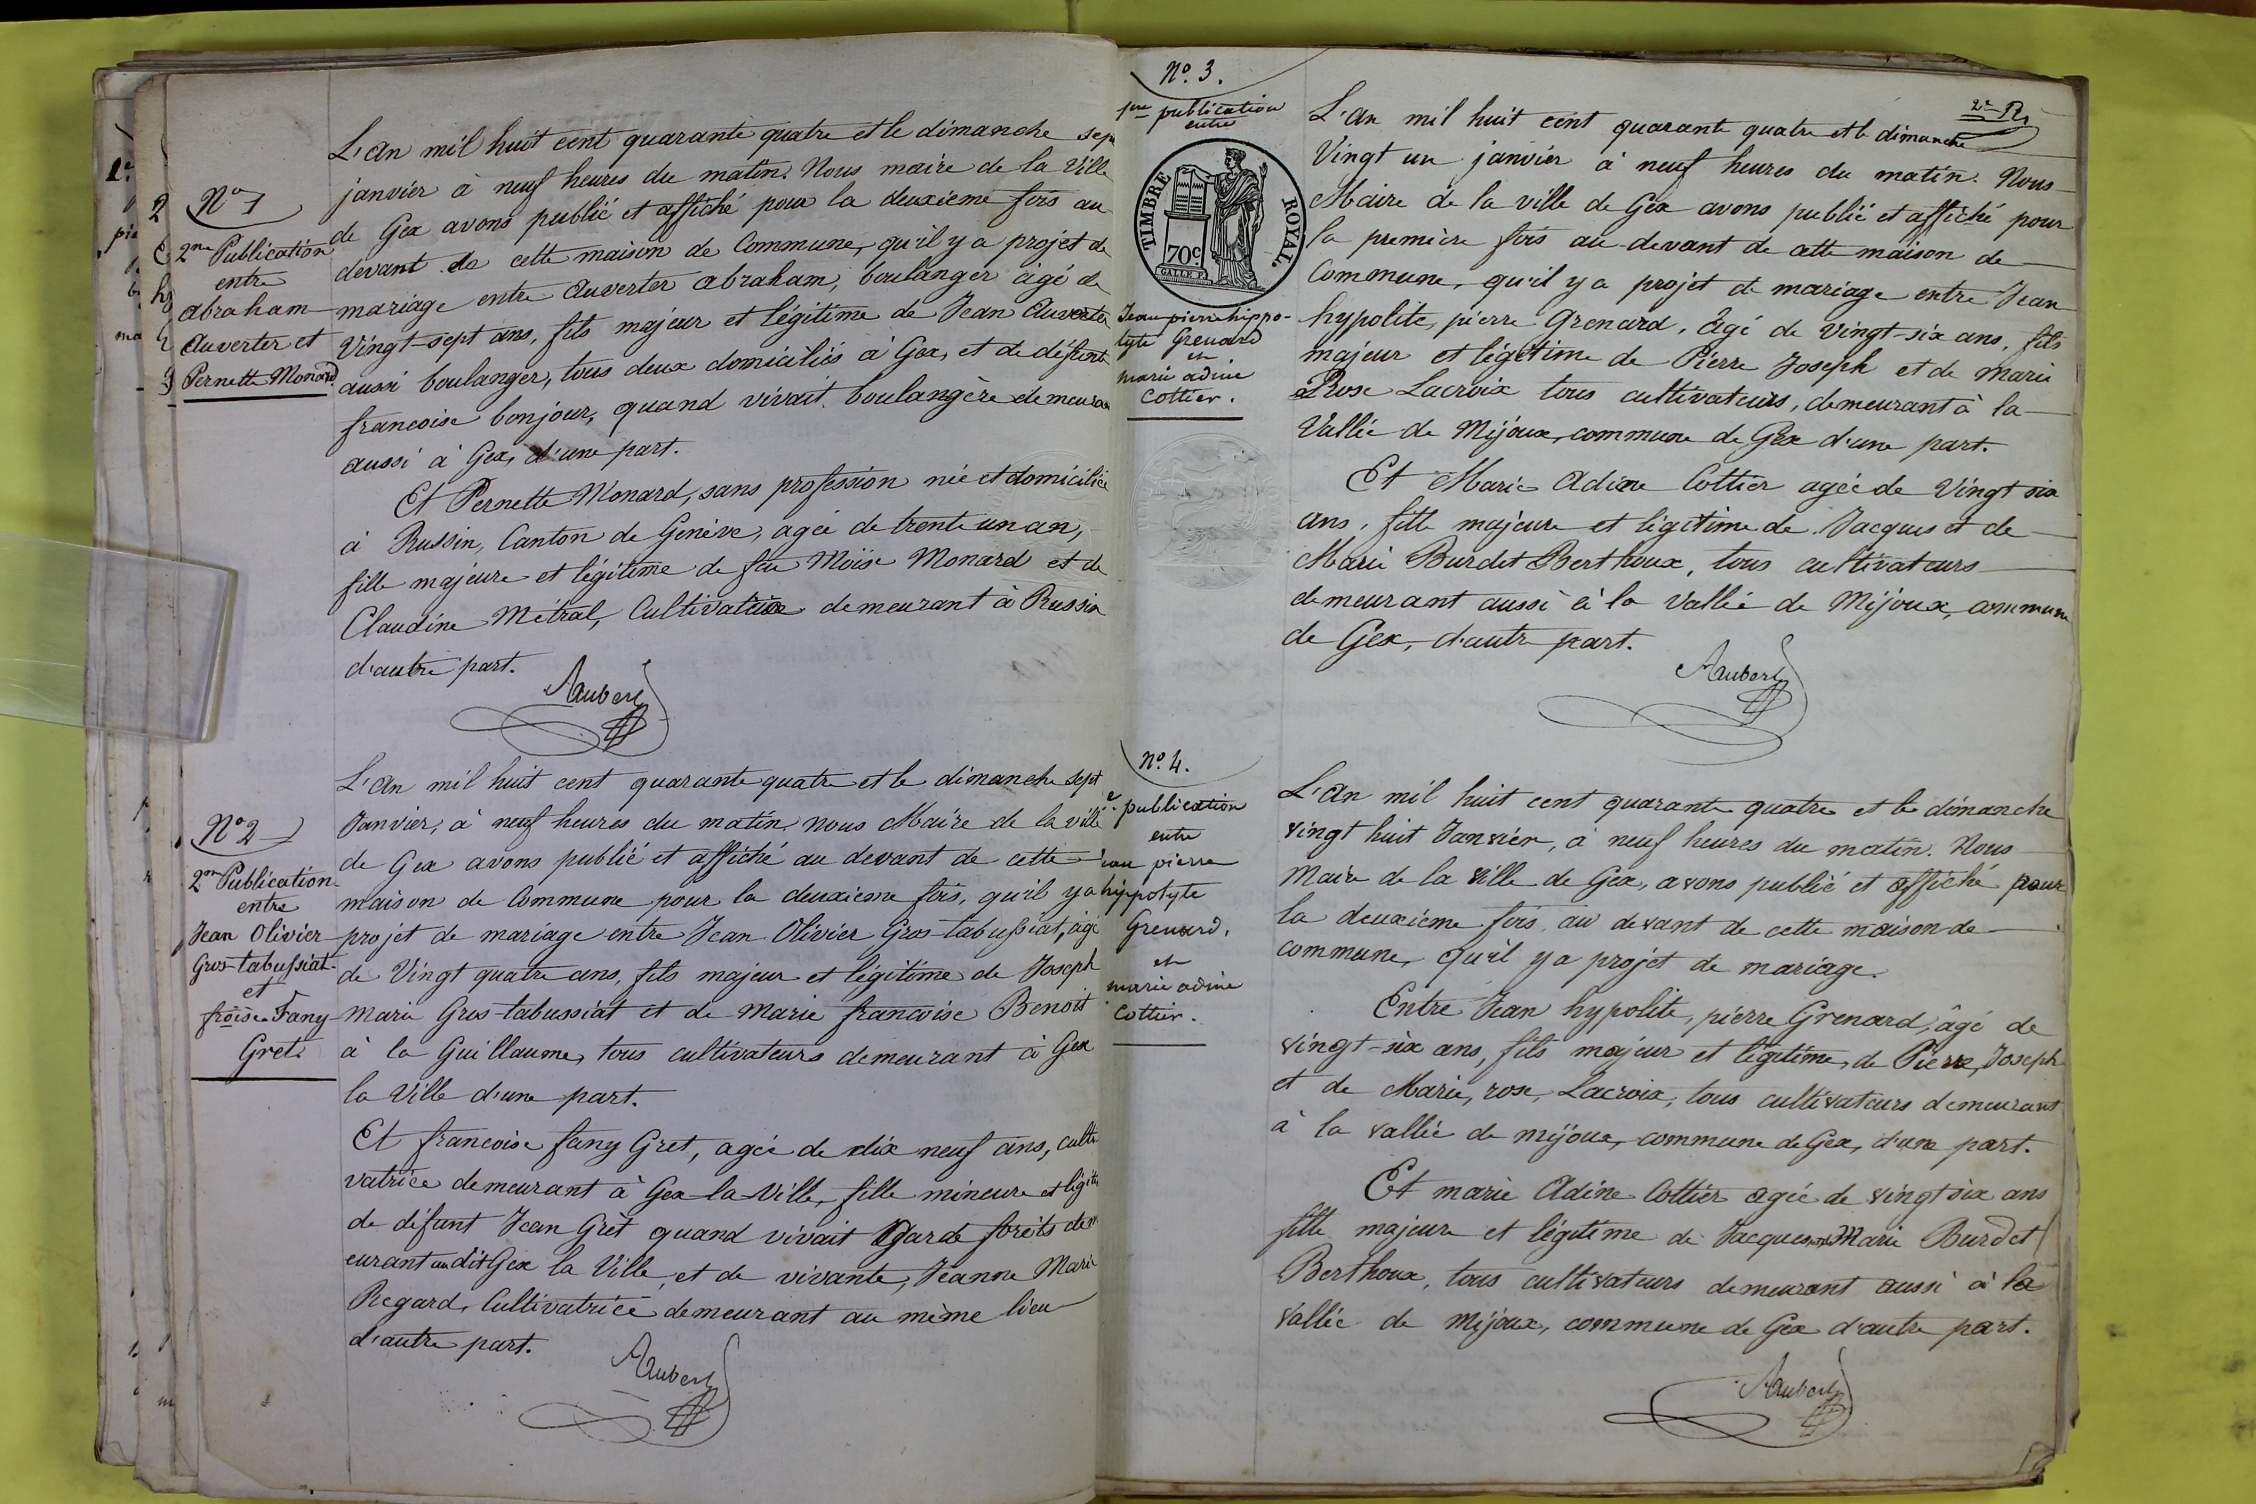 No 1
2me Publication
entre
abraham
auverter et
Pernette Monard
L'an mil huit cent quarante quatre et le dimanche sept
janvier à neuf heures du matin. Nous maire de la Ville
de Gex avons publié et affiché pour la deuxième fois au
devant de cette maison de Commune, qu'il y a projet de
mariage entre auverter abraham, boulanger âgé de
Vingt-sept ans, fils majeur et légitime de Jean Auverter
aussi boulanger, tous deux domiciliés à Gex, et de défunte
francoise bonjour, quand vivait boulangère demeurant
aussi à Gex, d'une part.
Et Pernette Monard, sans profession née et domiciliée
à Russin, Canton de Genève, agée de trente un an,
fille majeure et légitime de feu Moïse Monard et de
Claudine Métral, Cultivatrice demeurant à Russin
d'autre part.
Aubert
No 2
2me Publication
entre
Jean Olivier
Gros-tabussiat
et
froise Fany
Gret
L'an mil huit cent quarante quatre et le dimanche sept
Janvier, à neuf heures du matin, nous Maire de la ville
de Gex avons publié et affiché au devant de cette
maison de Commune pour la deuxième fois, qu'il y a
projet de mariage entre Jean Olivier Gros-tabussiat, agé
de Vingt quatre ans, fils majeur et légitime de Joseph
Marie Gros-tabussiat et de Marie francoise Benoit
à la Guillaume, tous cultivateurs demeurant à Gex
la Ville d'une part.
Et francoise fany Gret, agée de dix neuf ans, culti
vatrice demeurant à Gex-la-Ville, fille mineure et légiti
de défunt Jean Grèt quand vivait Garde forêts dem
eurant au dit Gex la Ville, et de vivante, Jeanne Marie
Regard, Cultivatrice demeurant au même lieu
d'autre part.
Aubert
No. 3.
1re publication
entre
TIMBRE ROYAL.
70c
GALLE F.
Jean pierre hippo-
lyte Grenard
et
marie adine
Cottier.
L'an mil huit cent quarante quatre et le dimanche
Vingt un janvier à neuf heures du matin. Nous
Maire de la ville de Gex avons publié et affiché pour
la première fois au-devant de cette maison de
Commune, qu'il y a projet de mariage entre Jean
hypolite, pierre Grenard, âgé de vingt-six ans, fils
majeur et légitime de Pierre Joseph et de Marie
Rose Lacroix tous cultivateurs, demeurant à la
Vallée de Mijoux, commune de Gex d'une part.
Et Marie Adine Cottier agée de Vingt six
ans, fille majeure et légitime de Jacques et de
Marie Burdet Berthoux, tous cultivateurs
demeurant aussi à la Vallée de Mijoux, commune
de Gex, d'autre part.
Aubert
No. 4.
e publication
entre
ean pierre
hippolyte
Grenard,
et
marie adine
Cottier.
L'an mil huit cent quarante quatre et le dimanche
vingt huit Janvier, à neuf heures du matin. Nous
Maire de la ville de Gex, avons publié et affiché pour
la deuxième fois, au devant de cette maison de
commune, qu'il y a projet de mariage.
Entre Jean hypolite, pierre Grenard, âgé de
vingt-six ans, fils majeur et légitime, de Pierre, Joseph
et de Marie, rose, Lacroix, tous cultivateurs demeurant
à la vallée de mijoux, commune de Gex, d'une part.
Et marie Adine Cottier agée de vingt six ans
fille majeur et légitime de Jacques et Marie Burdet
Berthoux, tous cultivateurs demeurant aussi à la
Vallée de Mijoux, commune de Gex d'autre part.
Aubert